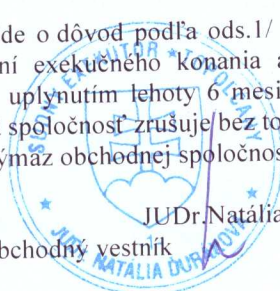 de o dôvod podľa ods.1/
ní exekučného konania a
uplynutím lehoty 6 mesi
spoločnosť zrušuje bez to
ýmaz obchodnej spoločnos
JUDr.Natália
bchodný vestník
EXEKÚTOR * TOPOĽČANY
JUDr. NATÁLIA